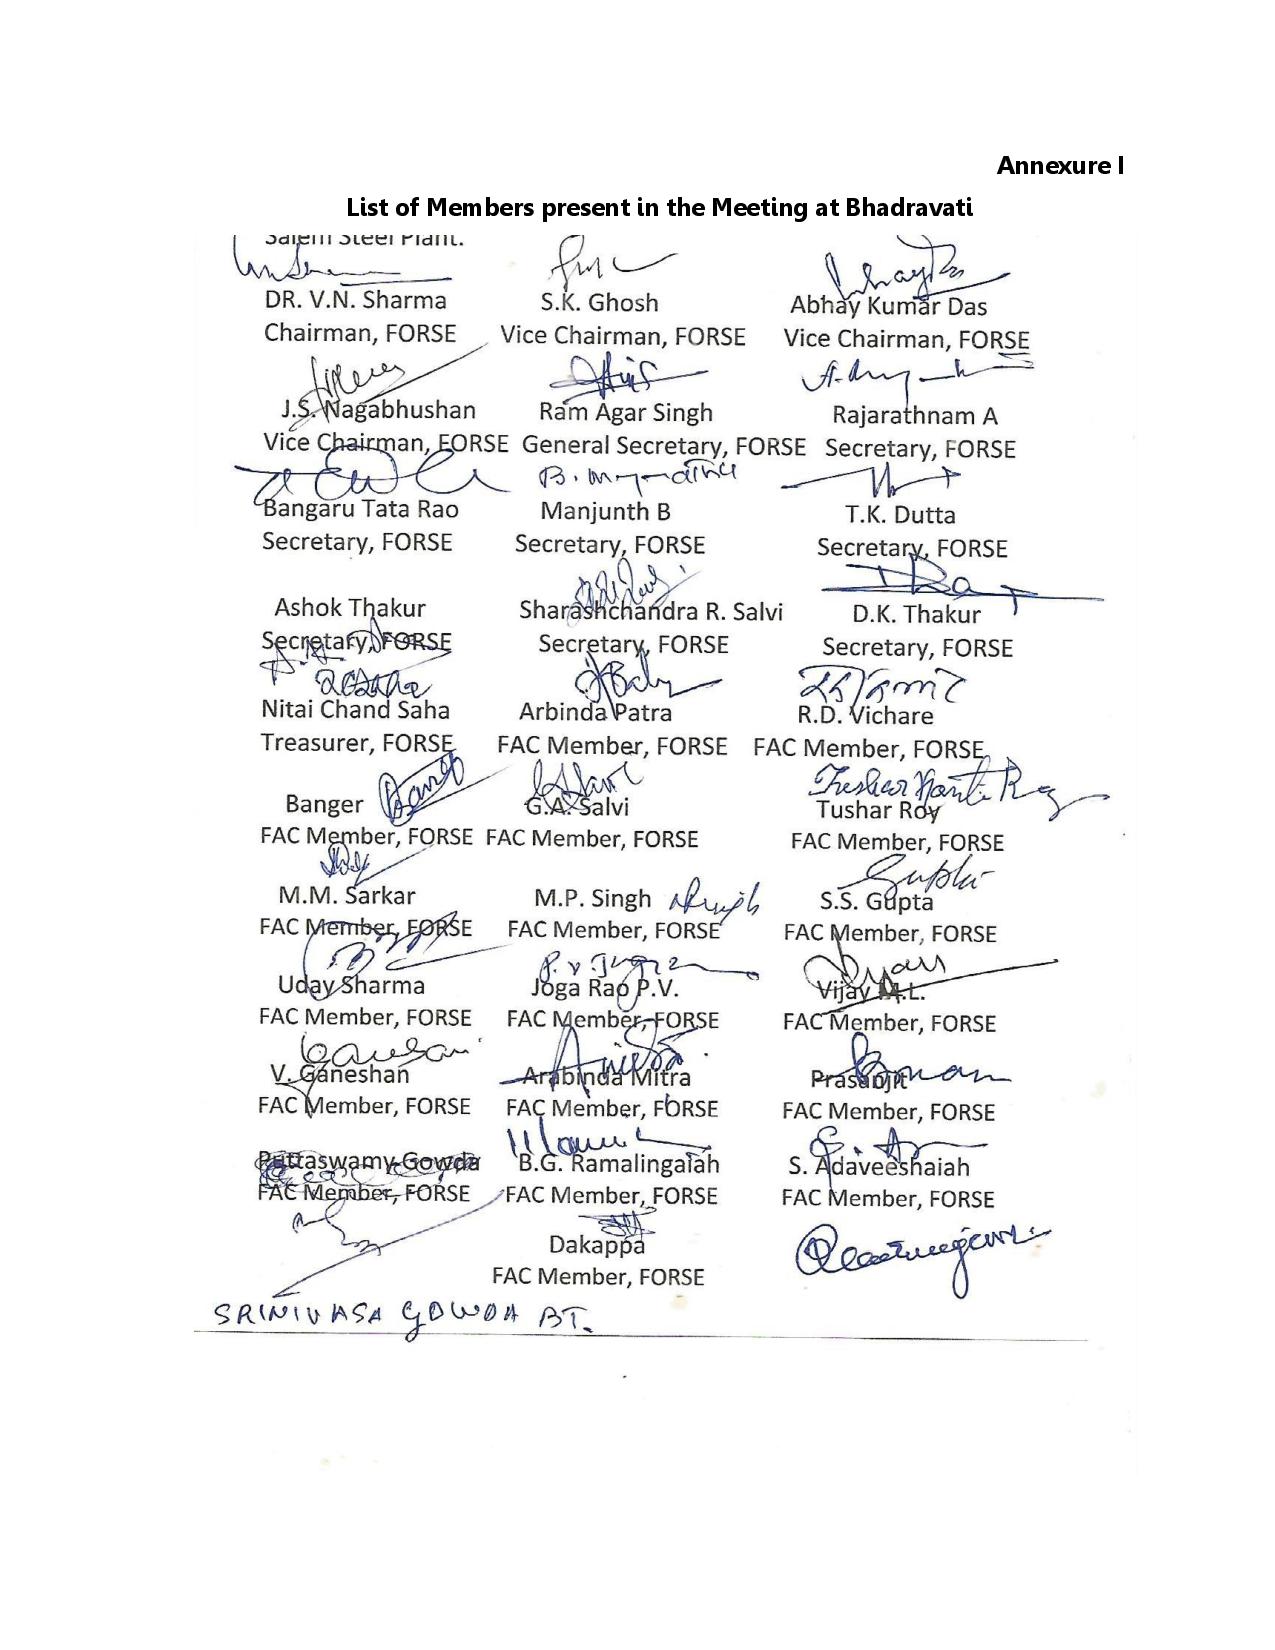 Annexure I
List of Members present in the Meeting at Bhadravati
Salem Steel Plant.
DR. V.N. Sharma S.K. Ghosh Abhay Kumar Das
Chairman, FORSE Vice Chairman, FORSE Vice Chairman, FORSE
J.S. Nagabhushan Ram Agar Singh Rajarathnam A
Vice Chairman, FORSE General Secretary, FORSE Secretary, FORSE
Bangaru Tata Rao Manjunth B T.K. Dutta
Secretary, FORSE Secretary, FORSE Secretary, FORSE
Ashok Thakur Sharashchandra R. Salvi D.K. Thakur
Secretary, FORSE Secretary, FORSE Secretary, FORSE
Nitai Chand Saha Arbinda Patra R.D. Vichare
Treasurer, FORSE FAC Member, FORSE FAC Member, FORSE
Banger G.A. Salvi Tushar Roy
FAC Member, FORSE FAC Member, FORSE FAC Member, FORSE
M.M. Sarkar M.P. Singh S.S. Gupta
FAC Member, FORSE FAC Member, FORSE FAC Member, FORSE
Uday Sharma Joga Rao P.V. Vijay M.L.
FAC Member, FORSE FAC Member, FORSE FAC Member, FORSE
V. Ganeshan Arabinda Mitra Prasanjit
FAC Member, FORSE FAC Member, FORSE FAC Member, FORSE
Puttaswamy Gowda B.G. Ramalingaiah S. Adaveeshaiah
FAC Member, FORSE FAC Member, FORSE FAC Member, FORSE
Dakappa
FAC Member, FORSE
SRINIVASA GOWDA BT.